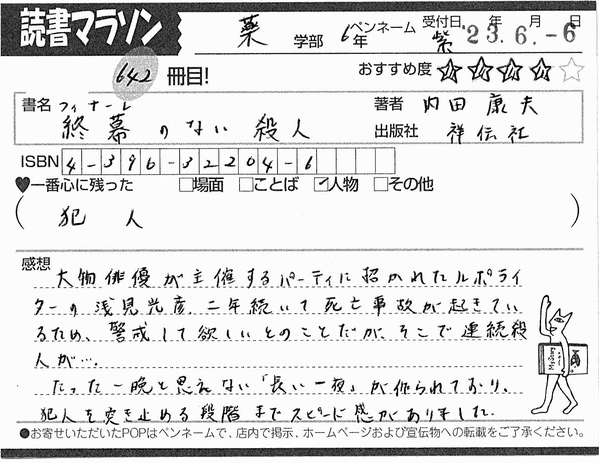 読書マラソン
薬 学部 6年 ペンネーム 紫 受付日 '23年6月-6日
642 冊目!
おすすめ度 ★★★★☆
書名 フィナーレ 終幕のない殺人
著者 内田康夫
出版社 祥伝社
ISBN 4-396-32204-6
♥一番心に残った □場面 □ことば ☑人物 □その他
(犯人)
感想
大物俳優が主催するパーティに招かれたルポライ
ターの浅見光彦。二年続いて死亡事故が起きてい
るため、警戒して欲しいとのことだが、そこで連続殺
人が…。
たった一晩と思えない「長い一夜」が作られており、
犯人を突き止める段階までスピード感がありました。
●お寄せいただいたPOPはペンネームで、店内で掲示、ホームページおよび宣伝物への転載をご了承ください。